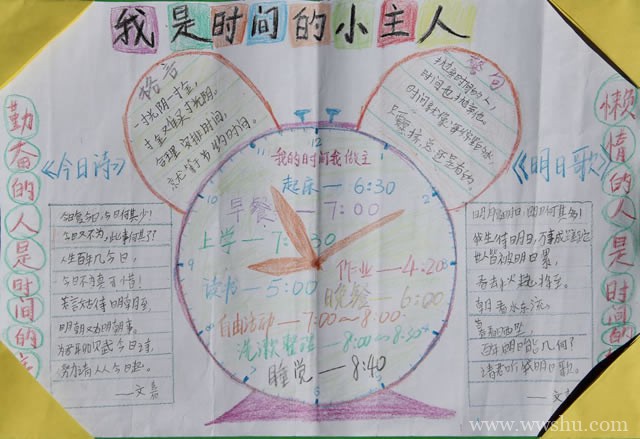 我是时间的小主人
格言
一寸光阴一寸金,
寸金难买寸光阴。
合理安排时间,
就等于节约时间。
警句
抛弃时间的人,
时间也抛弃他
时间就像海绵里的水
只要挤总还是有的。
勤奋的人是时间的
《今日诗》
今日复今日,今日何其少!
今日又不为,此事何其了?
人生百年几今日,
今日不为真可惜!
若言姑待明朝至,
明朝又有明朝事。
为君聊赋今日诗,
努力请从今日始。
——文嘉
我的时间我做主
起床—6:30
早餐—7:00
上学—7:30
作业—4:20
读书—5:00
晚餐—6:00
自由活动—7:00~8:00
洗漱整理—8:00~8:30
睡觉—8:40
12
2
3
4
6
8
9
10
《明日歌》
我生待明日,万事成蹉跎
世人皆被明日累,
朝看水东流,
百年明日能几何?
请君听我明日歌。
懒惰的人是时间的
www.wwshu.com